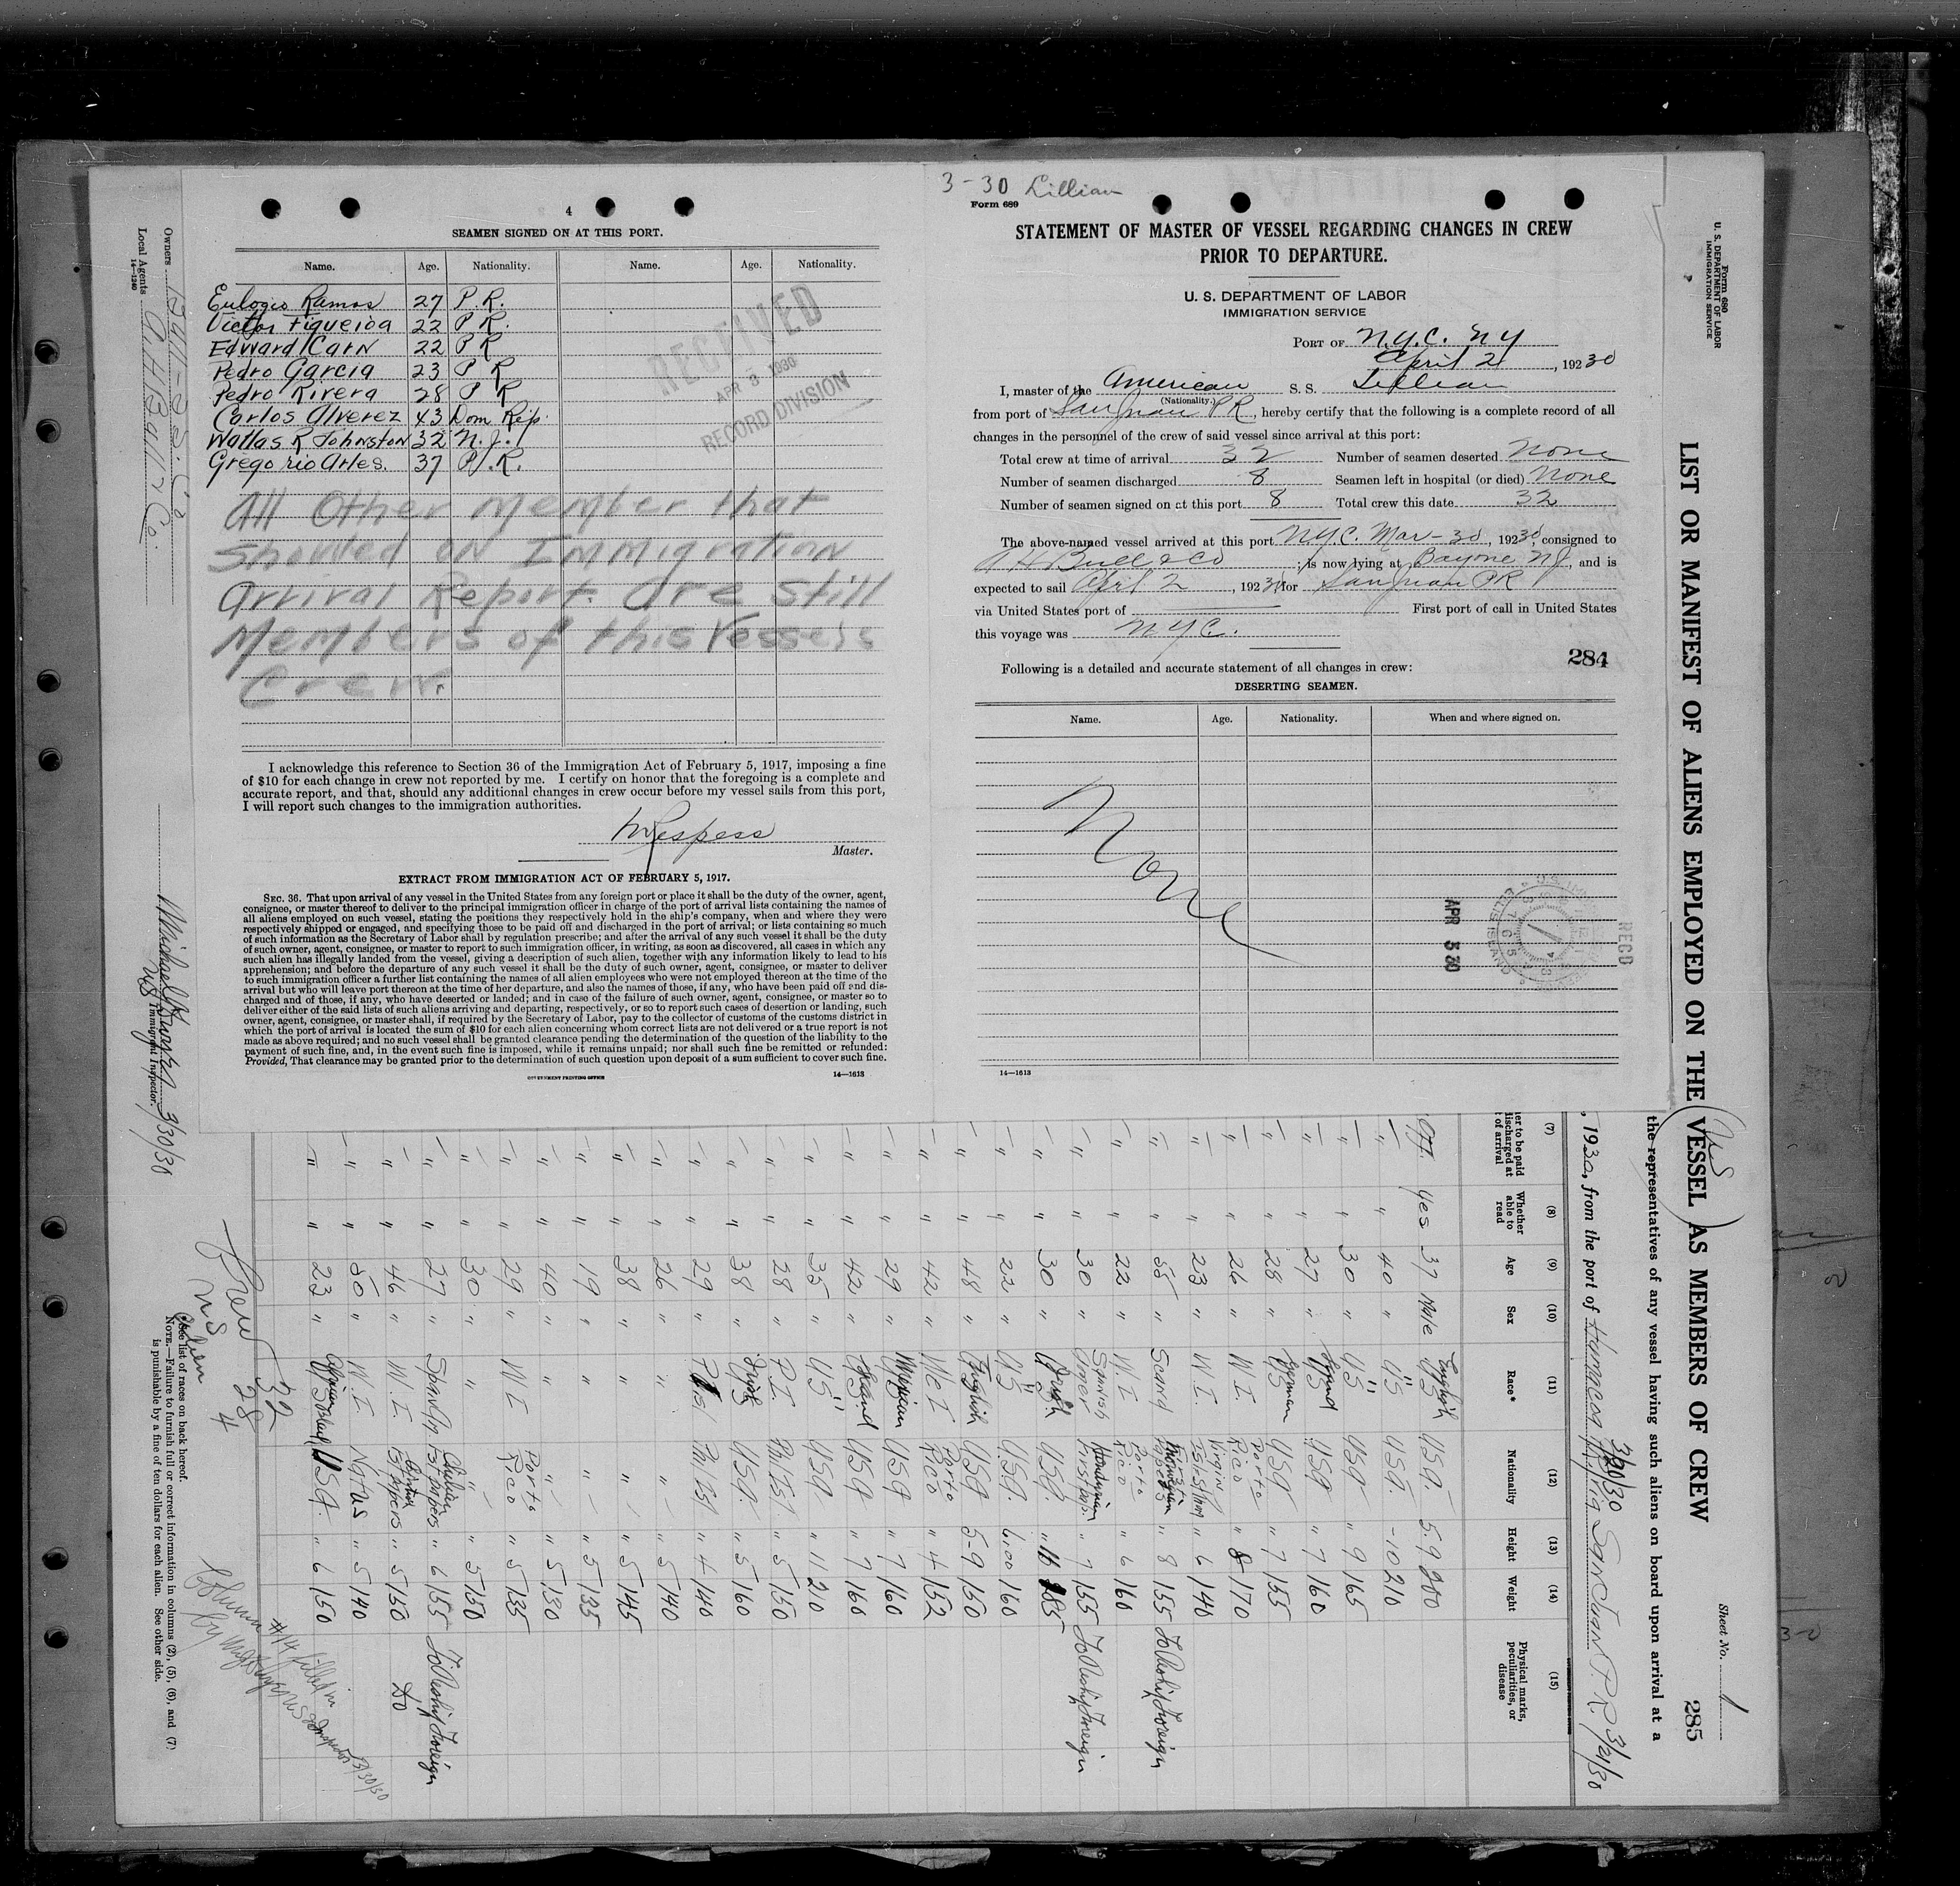 4
SEAMEN SIGNED ON AT THIS PORT.
Name. Age. Nationality. Name. Age. Nationality.
Eulogio Ramos 27 P.R.
Victor Figueroa 22 P R.
Edward Carn 22 P R
Pedro Garcia 23 P R
Pedro Rivera 28 P R
Carlos Alverez 43 Dom Rep.
Wallas R Johnston 32 N.J.
Gregorio Arles. 37 P.R.
RECEIVED
APR 3 1930
RECORD DIVISION
All Other Member that
Showed on Immigration
Arrival Report. Are Still
Members of this Vessels
Crew.
I acknowledge this reference to Section 36 of the Immigration Act of February 5, 1917, imposing a fine
of $10 for each change in crew not reported by me. I certify on honor that the foregoing is a complete and
accurate report, and that, should any additional changes in crew occur before my vessel sails from this port,
I will report such changes to the immigration authorities.
Respess
Master.
EXTRACT FROM IMMIGRATION ACT OF FEBRUARY 5, 1917.
SEC. 36. That upon arrival of any vessel in the United States from any foreign port or place it shall be the duty of the owner, agent,
consignee, or master thereof to deliver to the principal immigration officer in charge of the port of arrival lists containing the names of
all aliens employed on such vessel, stating the positions they respectively hold in the ship's company, when and where they were
respectively shipped or engaged, and specifying those to be paid off and discharged in the port of arrival; or lists containing so much
of such information as the Secretary of Labor shall by regulation prescribe; and after the arrival of any such vessel it shall be the duty
of such owner, agent, consignee, or master to report to such immigration officer, in writing, as soon as discovered, all cases in which any
such alien has illegally landed from the vessel, giving a description of such alien, together with any information likely to lead to his
apprehension; and before the departure of any such vessel it shall be the duty of such owner, agent, consignee, or master to deliver
to such immigration officer a further list containing the names of all alien employees who were not employed thereon at the time of the
arrival but who will leave port thereon at the time of her departure, and also the names of those, if any, who have been paid off and dis-
charged and of those, if any, who have deserted or landed; and in case of the failure of such owner, agent, consignee, or master so to
deliver either of the said lists of such aliens arriving and departing, respectively, or so to report such cases of desertion or landing, such
owner, agent, consignee, or master shall, if required by the Secretary of Labor, pay to the collector of customs of the customs district in
which the port of arrival is located the sum of $10 for each alien concerning whom correct lists are not delivered or a true report is not
made as above required; and no such vessel shall be granted clearance pending the determination of the question of the liability to the
payment of such fine, and, in the event such fine is imposed, while it remains unpaid; nor shall such fine be remitted or refunded:
Provided, That clearance may be granted prior to the determination of such question upon deposit of a sum sufficient to cover such fine.
GOVERNMENT PRINTING OFFICE 14—1613
3-30 Lillian
Form 689
STATEMENT OF MASTER OF VESSEL REGARDING CHANGES IN CREW
PRIOR TO DEPARTURE.
U. S. DEPARTMENT OF LABOR
IMMIGRATION SERVICE
PORT OF N.Y.C. NY
April 2, 19230
I, master of the American S. S. Lillian
(Nationality.)
from port of San Juan PR, hereby certify that the following is a complete record of all
changes in the personnel of the crew of said vessel since arrival at this port:
Total crew at time of arrival 32 Number of seamen deserted None
Number of seamen discharged 8 Seamen left in hospital (or died) None
Number of seamen signed on at this port 8 Total crew this date 32
The above-named vessel arrived at this port N.Y.C. Mar-30, 19230, consigned to
A H Bull & Co; is now lying at Bayone NJ, and is
expected to sail April 2, 19230 for San Juan PR
via United States port of First port of call in United States
this voyage was N Y C.
284
Following is a detailed and accurate statement of all changes in crew:
DESERTING SEAMEN.
Name. Age. Nationality. When and where signed on.
None
APR 3 30
REC'D
14—1613
Form 680
U. S. DEPARTMENT OF LABOR
IMMIGRATION SERVICE
LIST OR MANIFEST OF ALIENS EMPLOYED ON THE VESSEL AS MEMBERS OF CREW
Sheet No. 1
285
the representatives of any vessel having such aliens on board upon arrival at a
, 1930, from the port of San Juan P.R. 3/21/30
(7) (8) (9) (10) (11) (12) (13) (14) (15)
Whether able to read Age Sex Race* Nationality Height Weight Physical marks, peculiarities, or disease
Yes 37 Male English USA. 5-9 200
" 40 " US USA. -10 210
" 30 " US USA " 9 165
" 27 " USA " 7 160
" 28 " German USA " 7 155
" 26 " W.I. Porto Rico " 8 170
" 23 " W.I. " 6 140
" 55 " Scand " 8 155
" 22 " W.I Porto Rico " 6 160
" 30 " Spanish Amer " 7 155
" 30 " Irish USA. " 11 185
" 22 " US USA. 6.00 160
" 48 " English USA 5-9 150
" 42 " W.I Porto Rico " 4 152
" 29 " Mexican USA " 7 160
" 42 " USA " 7 160
" 35 " US USA " 11 210
" 28 " P.I. Phl Isl. " 5 150
" 38 " Irish USA. " 5 160
" 29 " P Isl Phl Isl " 4 140
" 26 " " " " 5 140
" 38 " " " " 5 145
" 19 " " " " 5 135
" 40 " " " " 5 130
" 29 " W I Porto Rico " 5 135
" 30 " " " " 5 150
" 27 " Chilian " 6 155
" 46 " W.I " 5 150 Do
" 50 " W.I " 5 140
" 23 " USA. " 6 150
Crew 32
US 28
Alien 4
*See list of races on back hereof.
NOTE.—Failure to furnish full or correct information in columns (2), (5), (6), and (7)
is punishable by a fine of ten dollars for each alien. See other side.
Column #14 filled in
by 3/30/30
Owners Bull-S S. Co
Local Agents A. H. Bull & Co.
14—1240
3/30/30
US Immigrant Inspector.